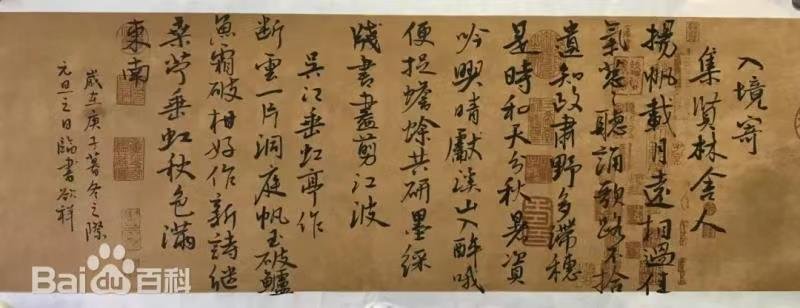 入境寄
集賢林舍人
揚帆載月遠相過佳
氣葱〻聽誦歌路不拾
遺知政肅野多滯穗
是時和天分秋暑資
吟興晴獻溪山入醉哦
便捉蟾蜍共研墨綵
牋書盡剪江波
吳江垂虹亭作
斷雲一片洞庭帆玉破鱸
魚霜破柑好作新詩繼
桑苧垂虹秋色滿
東南
歲在庚子暮冬之際
元旦之日臨書
Bai百科